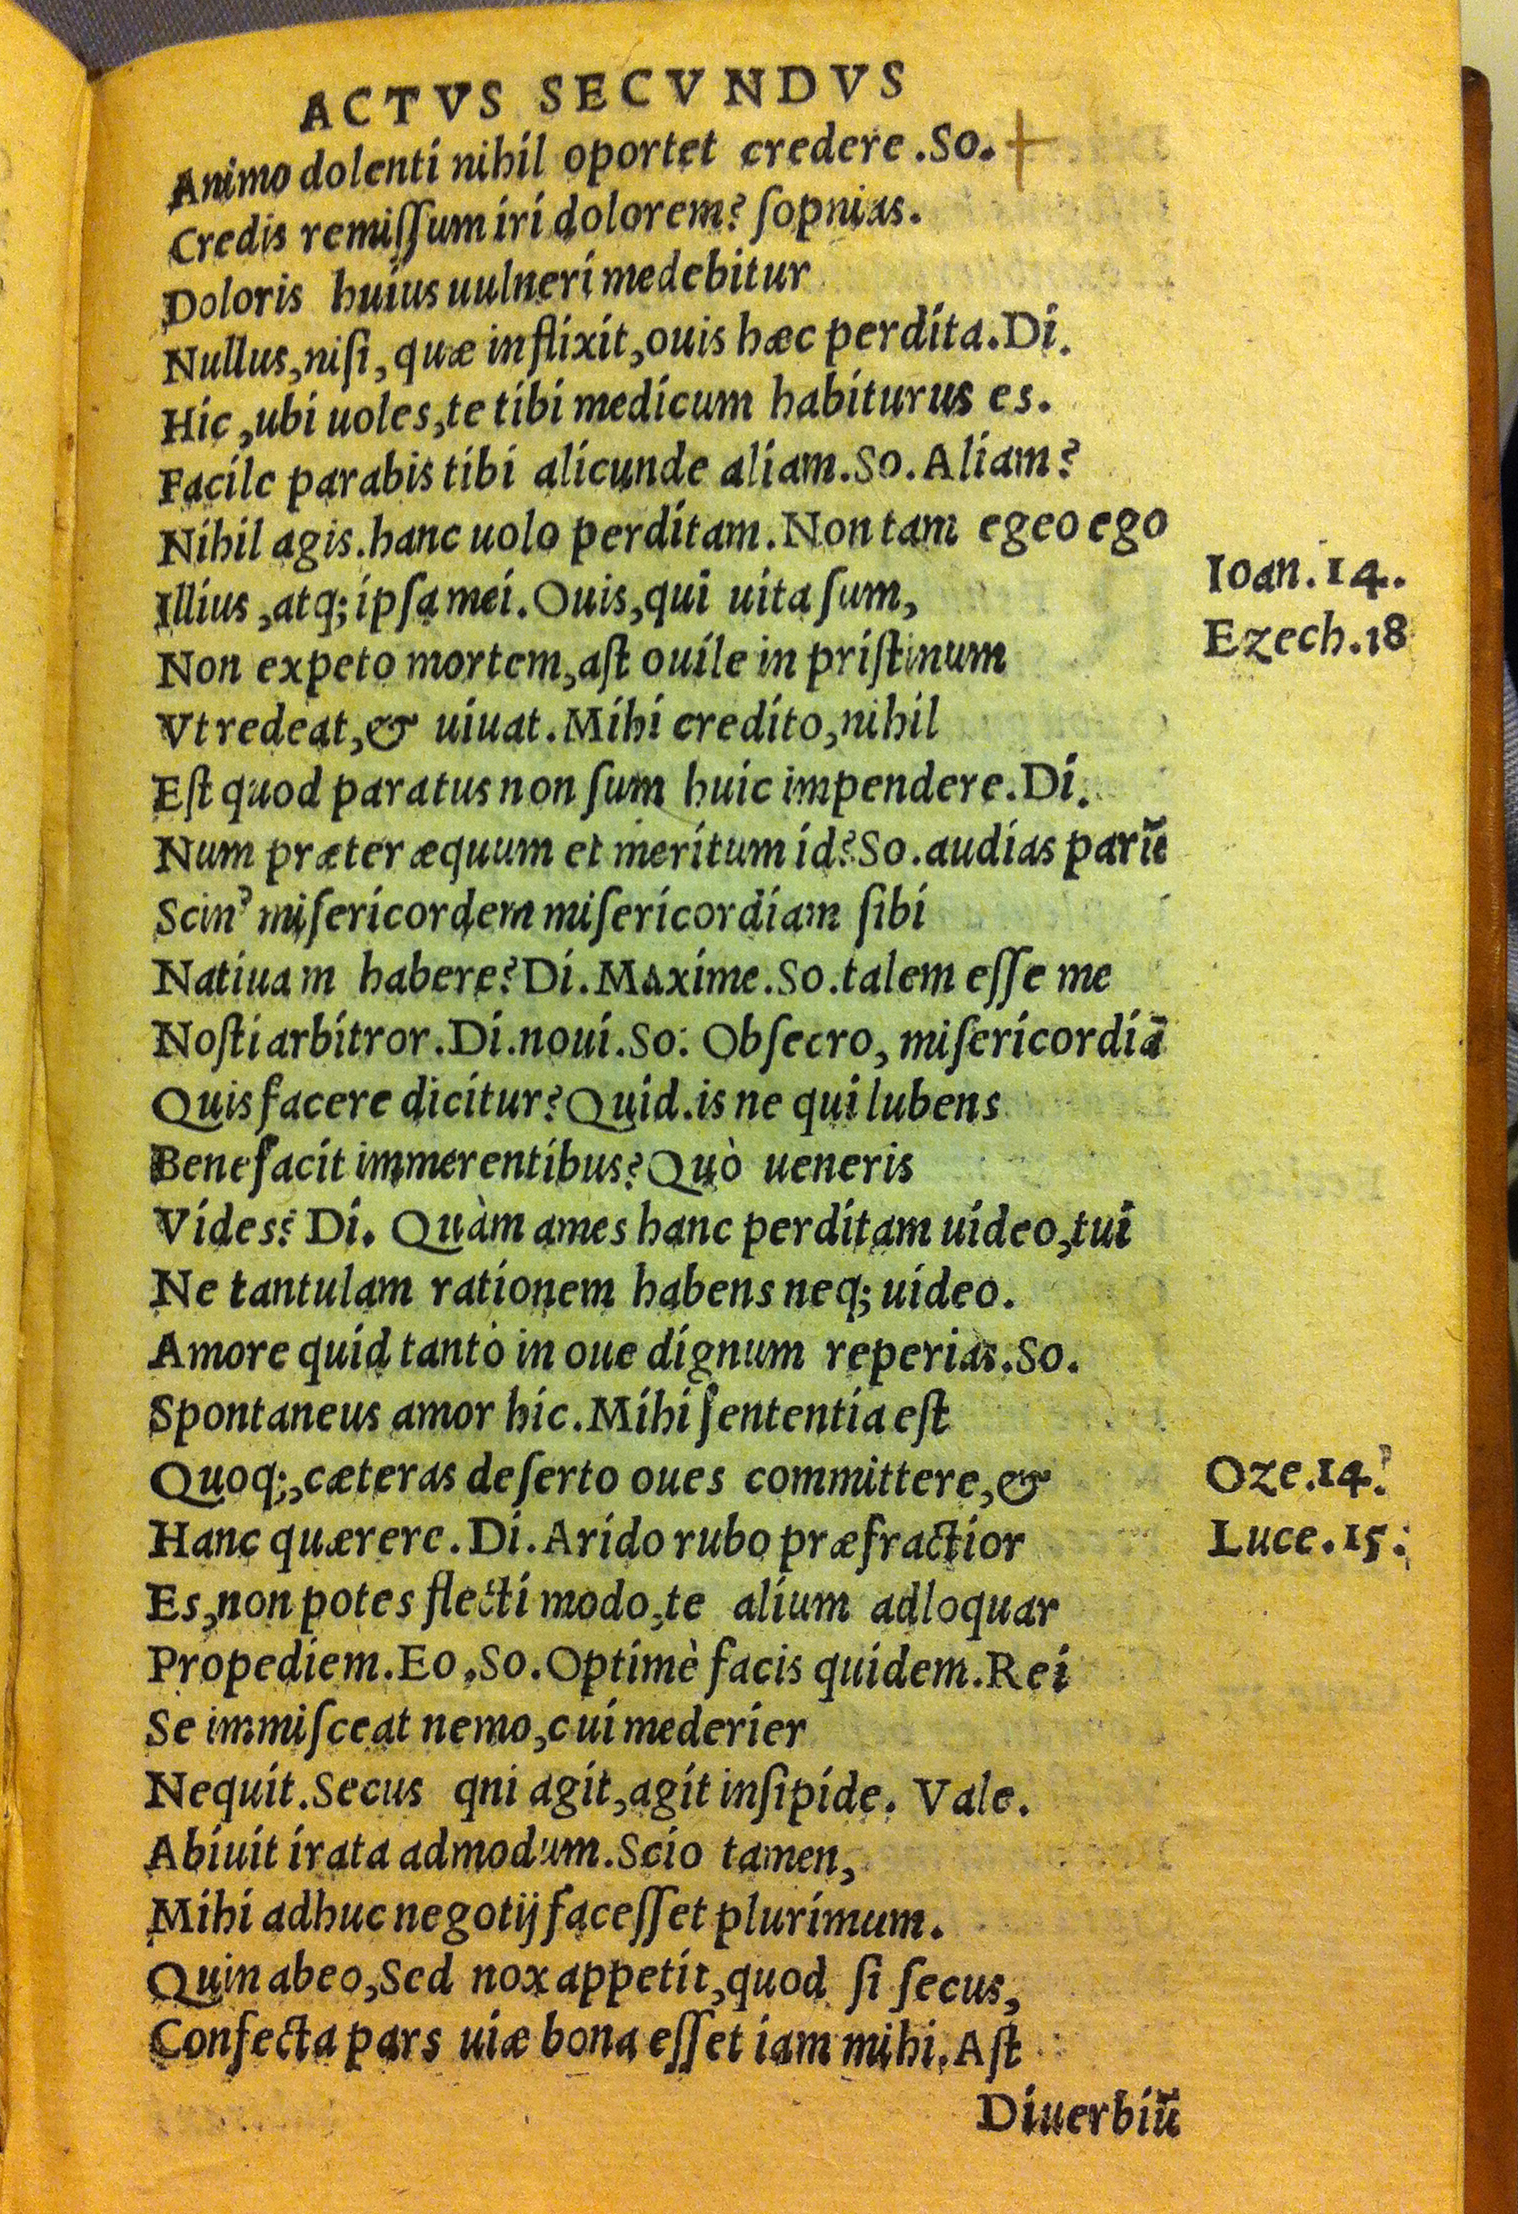 ACTVS SECVNDVS
Animo dolenti nihil oportet credere .So.
Credis remiſſum iri dolorem? ſopnias.
Doloris huius uulneri medebitur
Nullus, niſi, quæ inflixit, ouis hæc perdita. Di.
Hic, ubi uoles, te tibi medicum habiturus es.
Facile parabis tibi alicunde aliam. So. Aliam?
Nihil agis. hanc uolo perditam. Non tam egeo ego
Illius, atq; ipſa mei. Ouis, qui uita ſum,
Ioan. 14.
Non expeto mortem, aſt ouile in priſtinum
Ezech. 18
Vt redeat, & uiuat. Mihi credito, nihil
Eſt quod paratus non ſum huic impendere. Di.
Num præter æquum et meritum id? So. audias parū
Scin' miſericordem miſericordiam ſibi
Natiuam habere? Di. Maxime. So. talem eſſe me
Noſti arbitror. Di. noui. So: Obſecro, miſericordiā
Quis facere dicitur? Quid. is ne qui lubens
Benefacit immerentibus? Quò ueneris
Vides? Di. Quàm ames hanc perditam uideo, tui
Ne tantulam rationem habens neq; uideo.
Amore quid tanto in oue dignum reperias. So.
Spontaneus amor hic. Mihi ſententia eſt
Quoq;, cæteras deſerto oues committere, &
Oze. 14.
Hanc quærere. Di. Arido rubo præfractior
Luce. 15.
Es, non potes flecti modo, te alium adloquar
Propediem. Eo, So. Optimè facis quidem. Rei
Se immiſceat nemo, cui mederier
Nequit. Secus qni agit, agit inſipide. Vale.
Abiuit irata admodum. Scio tamen,
Mihi adhuc negotij faceſſet plurimum.
Quin abeo, Sed nox appetit, quod ſi ſecus,
Confecta pars uiæ bona eſſet iam mihi. Aſt
Diuerbiū